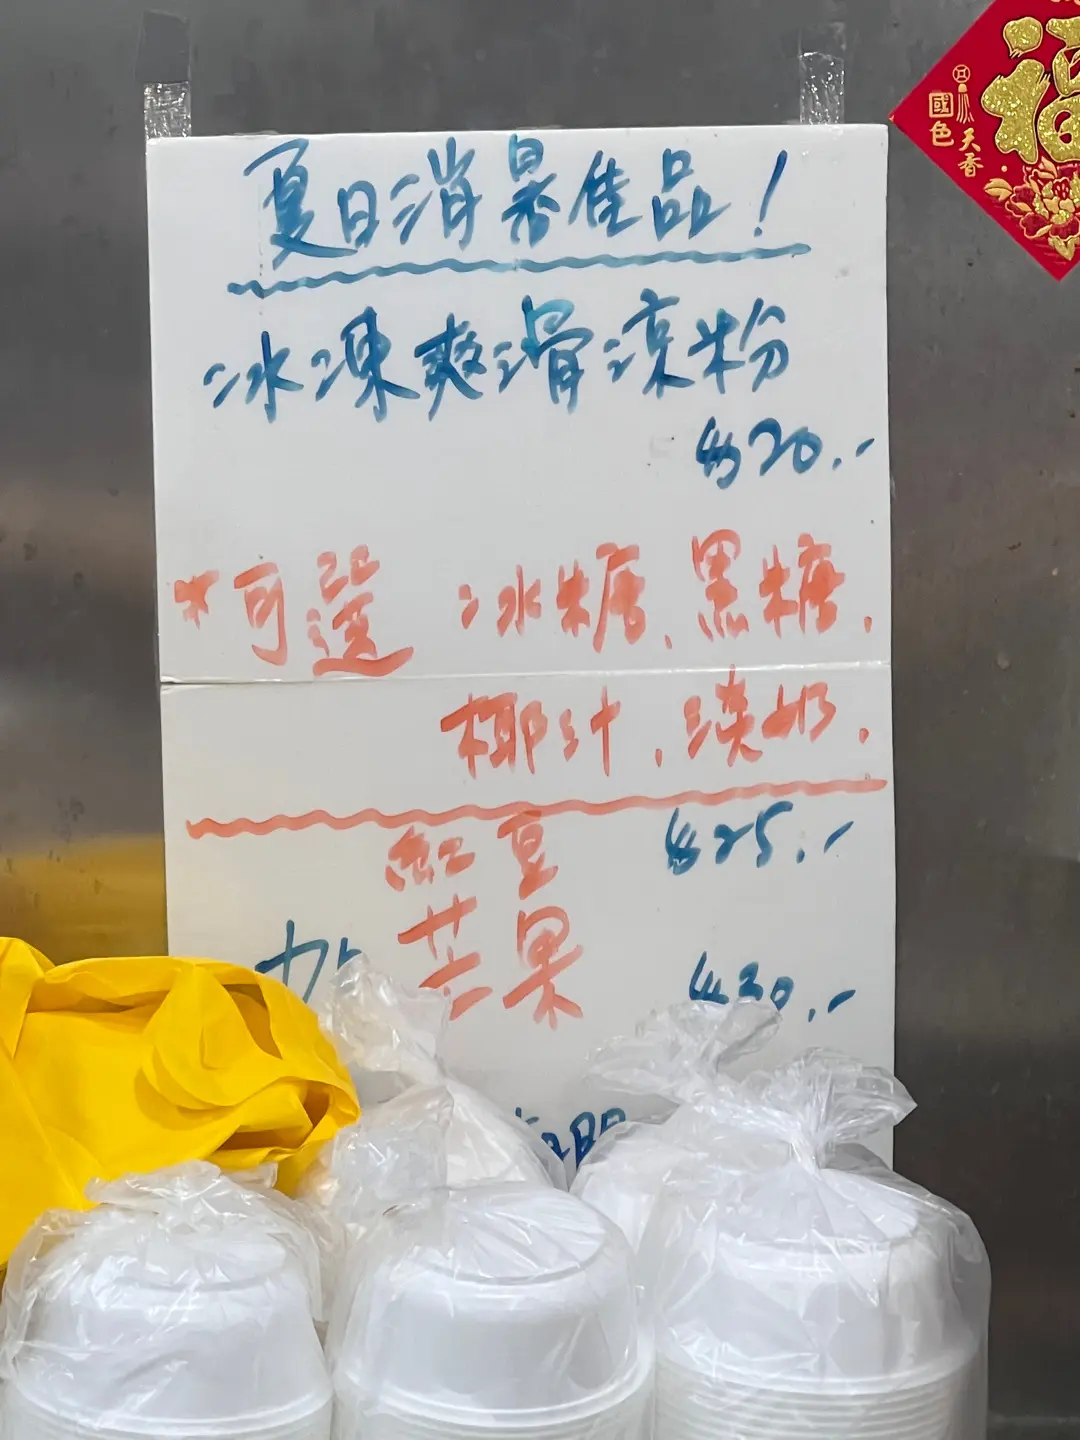 夏日消暑佳品!
冰凍爽滑涼粉
$20.-
*可選 冰糖、黑糖、
椰汁、淡奶、
紅豆 $25.-
加 芒果 $30.-
福
國色
天香